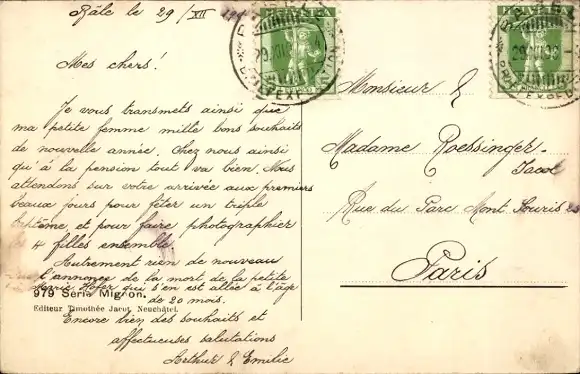 Bâle le 29/XII
Mes chers!
Je vous transmets ainsi que
ma petite femme mille bons souhaits
de nouvelle année. Chez nous ainsi
qu'à la pension tout va bien. Nous
attendons sur votre arrivée aux premiers
beaux jours pour fêter un triple
baptême, et pour faire photographier
les 4 filles ensemble.
Autrement rien de nouveau
l'annonce de la mort de la petite
Marie Hofer qui s'en est allée à l'âge
de 20 mois.
979 Serie Mignon.
Editeur Timothée Jacot, Neuchâtel.
Encore bien des souhaits et
affectueuses salutations
Arthur & Emilie
HELVETIA
HELVETIA
Monsieur &
Madame Roessinger-
Jacot
Rue du Parc Mont Souris
Paris